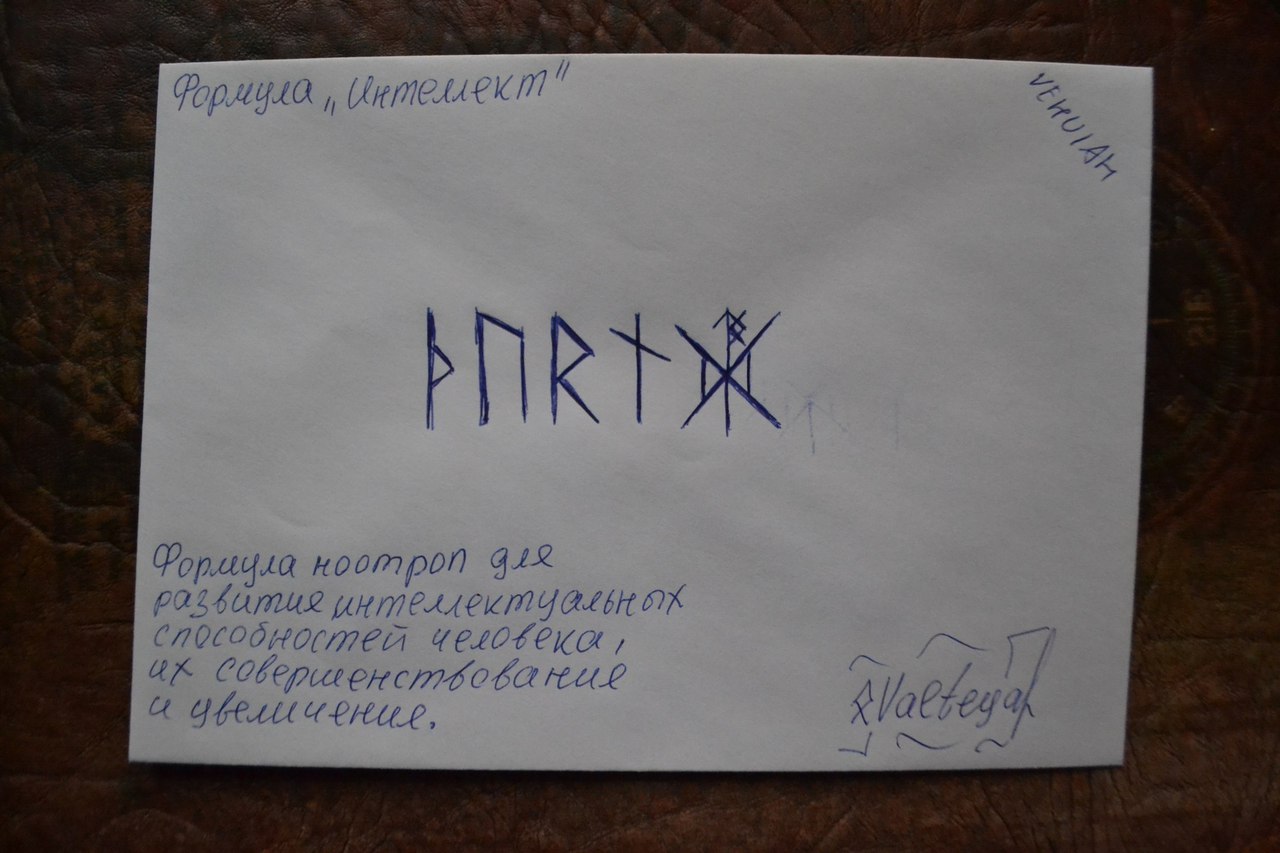 Формула „Интеллект"
VEHUIAH
ᚦᚢᚱᚾ
Формула ноотроп для
развития интеллектуальных
способностей человека,
их совершенствование
и увеличение.